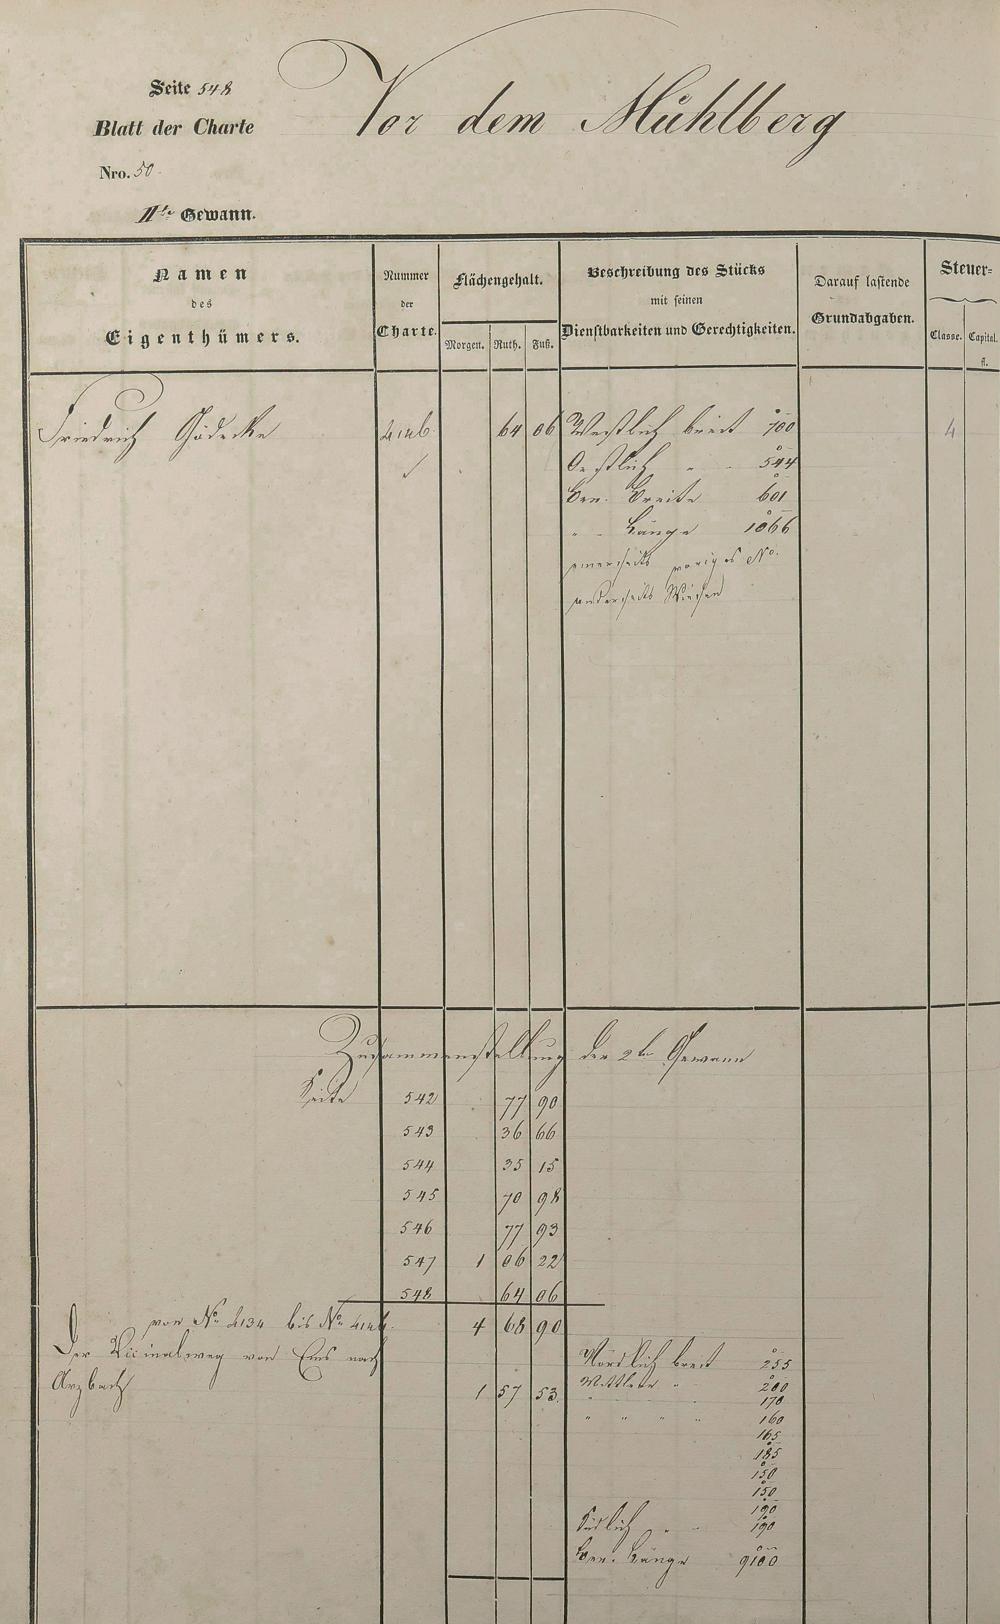 Seite 548
Vor dem Mühlberg
Blatt der Charte
Nro. 50
IIte Gewann.
Namen des Eigenthümers.
Nummer der Charte.
Flächengehalt.
Morgen. Ruth. Fuß.
Beschreibung des Stücks
mit seinen
Dienstbarkeiten und Gerechtigkeiten.
Darauf lastende
Grundabgaben.
Steuer=
Classe. Capital.
fl.
Friedrich Gödecke 64 06 Westlich breit 700 4
Oestlich " - 544
Ber. Breite 601
" - Länge 1066
einerseits voriges No.
anderseits Wiesen
Zusammenstellung der 2ten Gewann
Seite 542 77 90
543 36 66
544 35 15
545 70 98
546 77 93
547 1 06 22
548 64 06
von No. bis No. 4 68 90
Der Vicinalweg von Ems nach
Arzbach 1 57 53
Nördlich breit 255
Mittlere " 200
170
" " " " 160
165
185
150
150
190
Südlich " - 190
Ber. Länge 9100